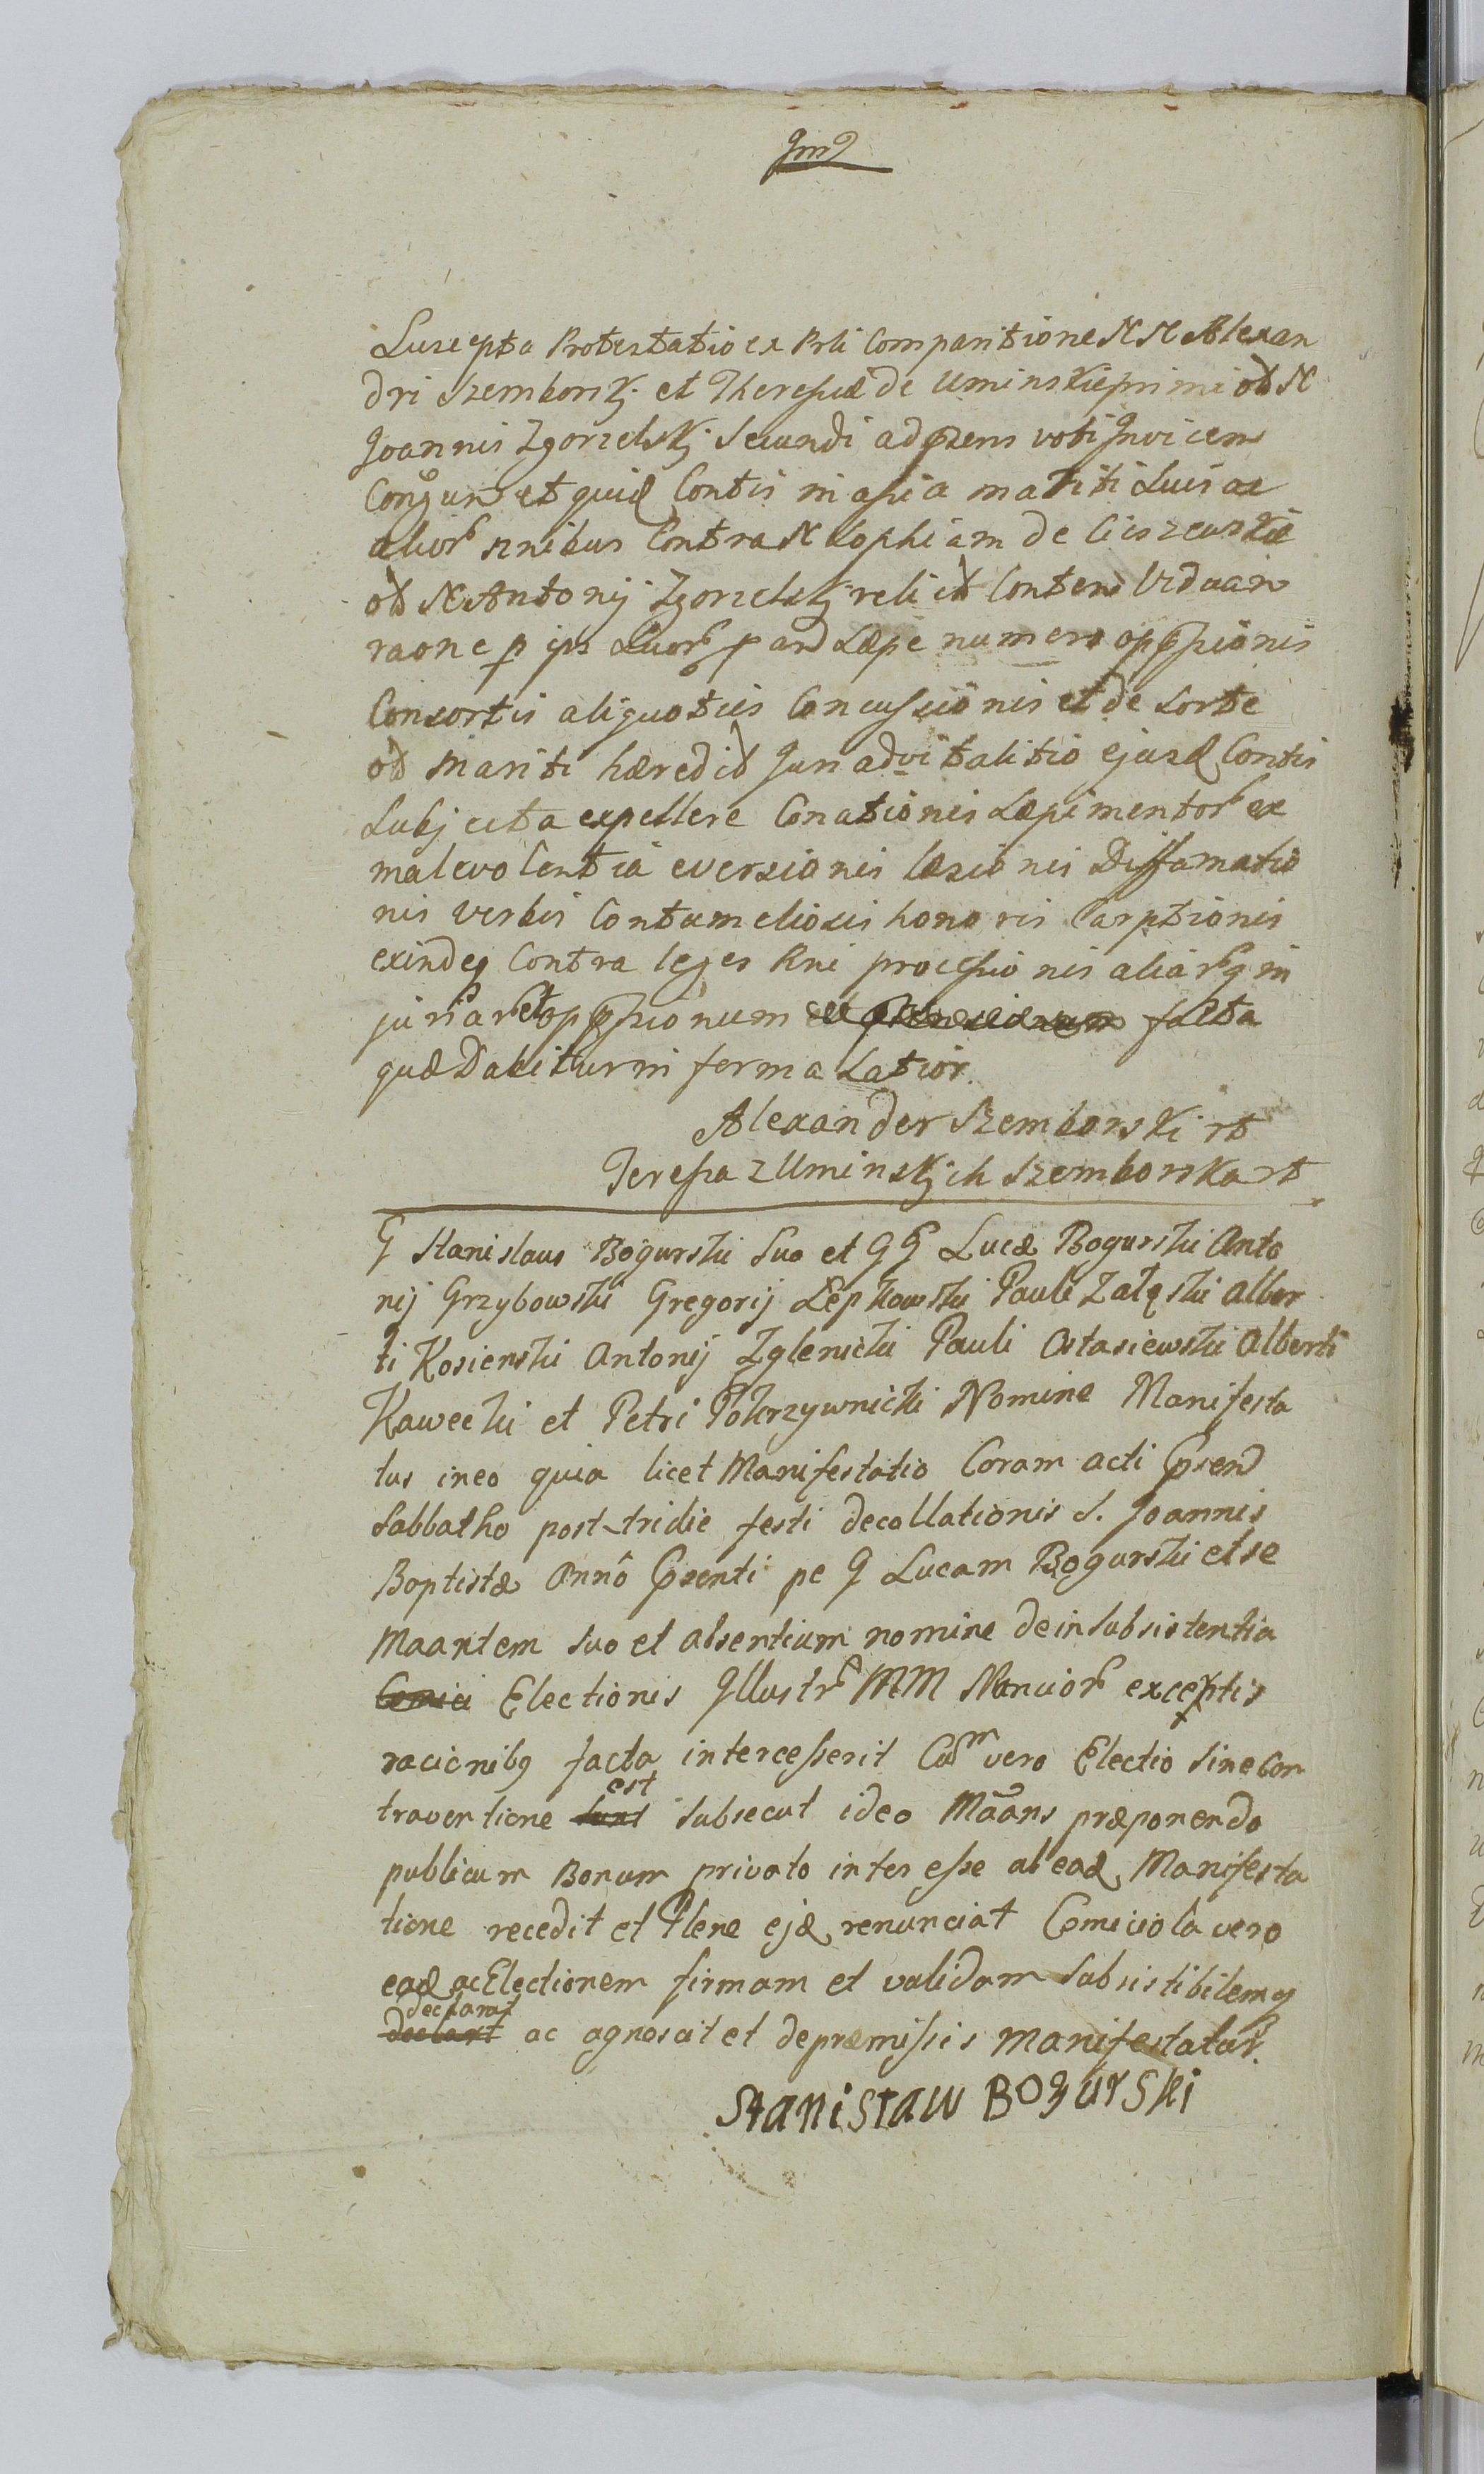 Suscepta Protestatio ex Prli Comparitione N N Alexan
dri Szemborskj et Theresiæ de Uminskie primi oƀ N
Joannis Zgorzelskj Secundi ad pñsens voti Jnvicem
Conjgum et quid Contis in asia mariti Suis ac
alior snibus Contra N Sophiam de Cieszewskie
oƀ N Antonij Zgorzelskj relict Contem Viduam
raone p ips Suor pard Sæpe numero oppssionis
Consortis aliquoties Concussionis et de Sorte
oƀ mariti hæredit Jure advitalitio ejusd Contis
Subjecta expellere Conationis Sæpimentor ex
malevolentia eversionis læsionis Diffamatio
nis Verbis Contumeliosis honoris Carptionis
exindeq Contra leges Rni processionis aliarq in
juriar et oppssionum facta
quæ Dabitur in ferma Latior.
Alexander Szemborski rt
Teressa z Uminskjch Szemborska rt
G Stanislaus Bogurski Suo et G G Lucæ Bogurski Anto
nij Grzybowski Gregorij Lepkowski Pauli Załęski Alber
ti Kosienski Antonij Zglenicki Pauli Ostasiewski Alberti
Kawecki et Petri Pokrzywnicki Nomine Manifesta
tus in eo quia licet Manifestatio Coram acti pnsend
Sabbatho post tridie festi decollationis S. Joannis
Baptistæ Annô pnsenti pe G Lucam Bogurski et se
Maantem suo et absentium nomine de insubsistentia
Electionis Jllustr MM Nuncior exceptis
racionibq facta intercesserit Cum vero Electio sine Con
traventione sunt est subsecut ideo Mãans præponendo
publicum Bonum privato interesse ab ead Manifesta
tione recedit et Plene ejd renunciat Comiciola vero
ead ac Electionem firmam et validam Subsistibilemq
declarat declarat ac agnoscit et de præmissis manifestatur.
Stanisław Bogurski